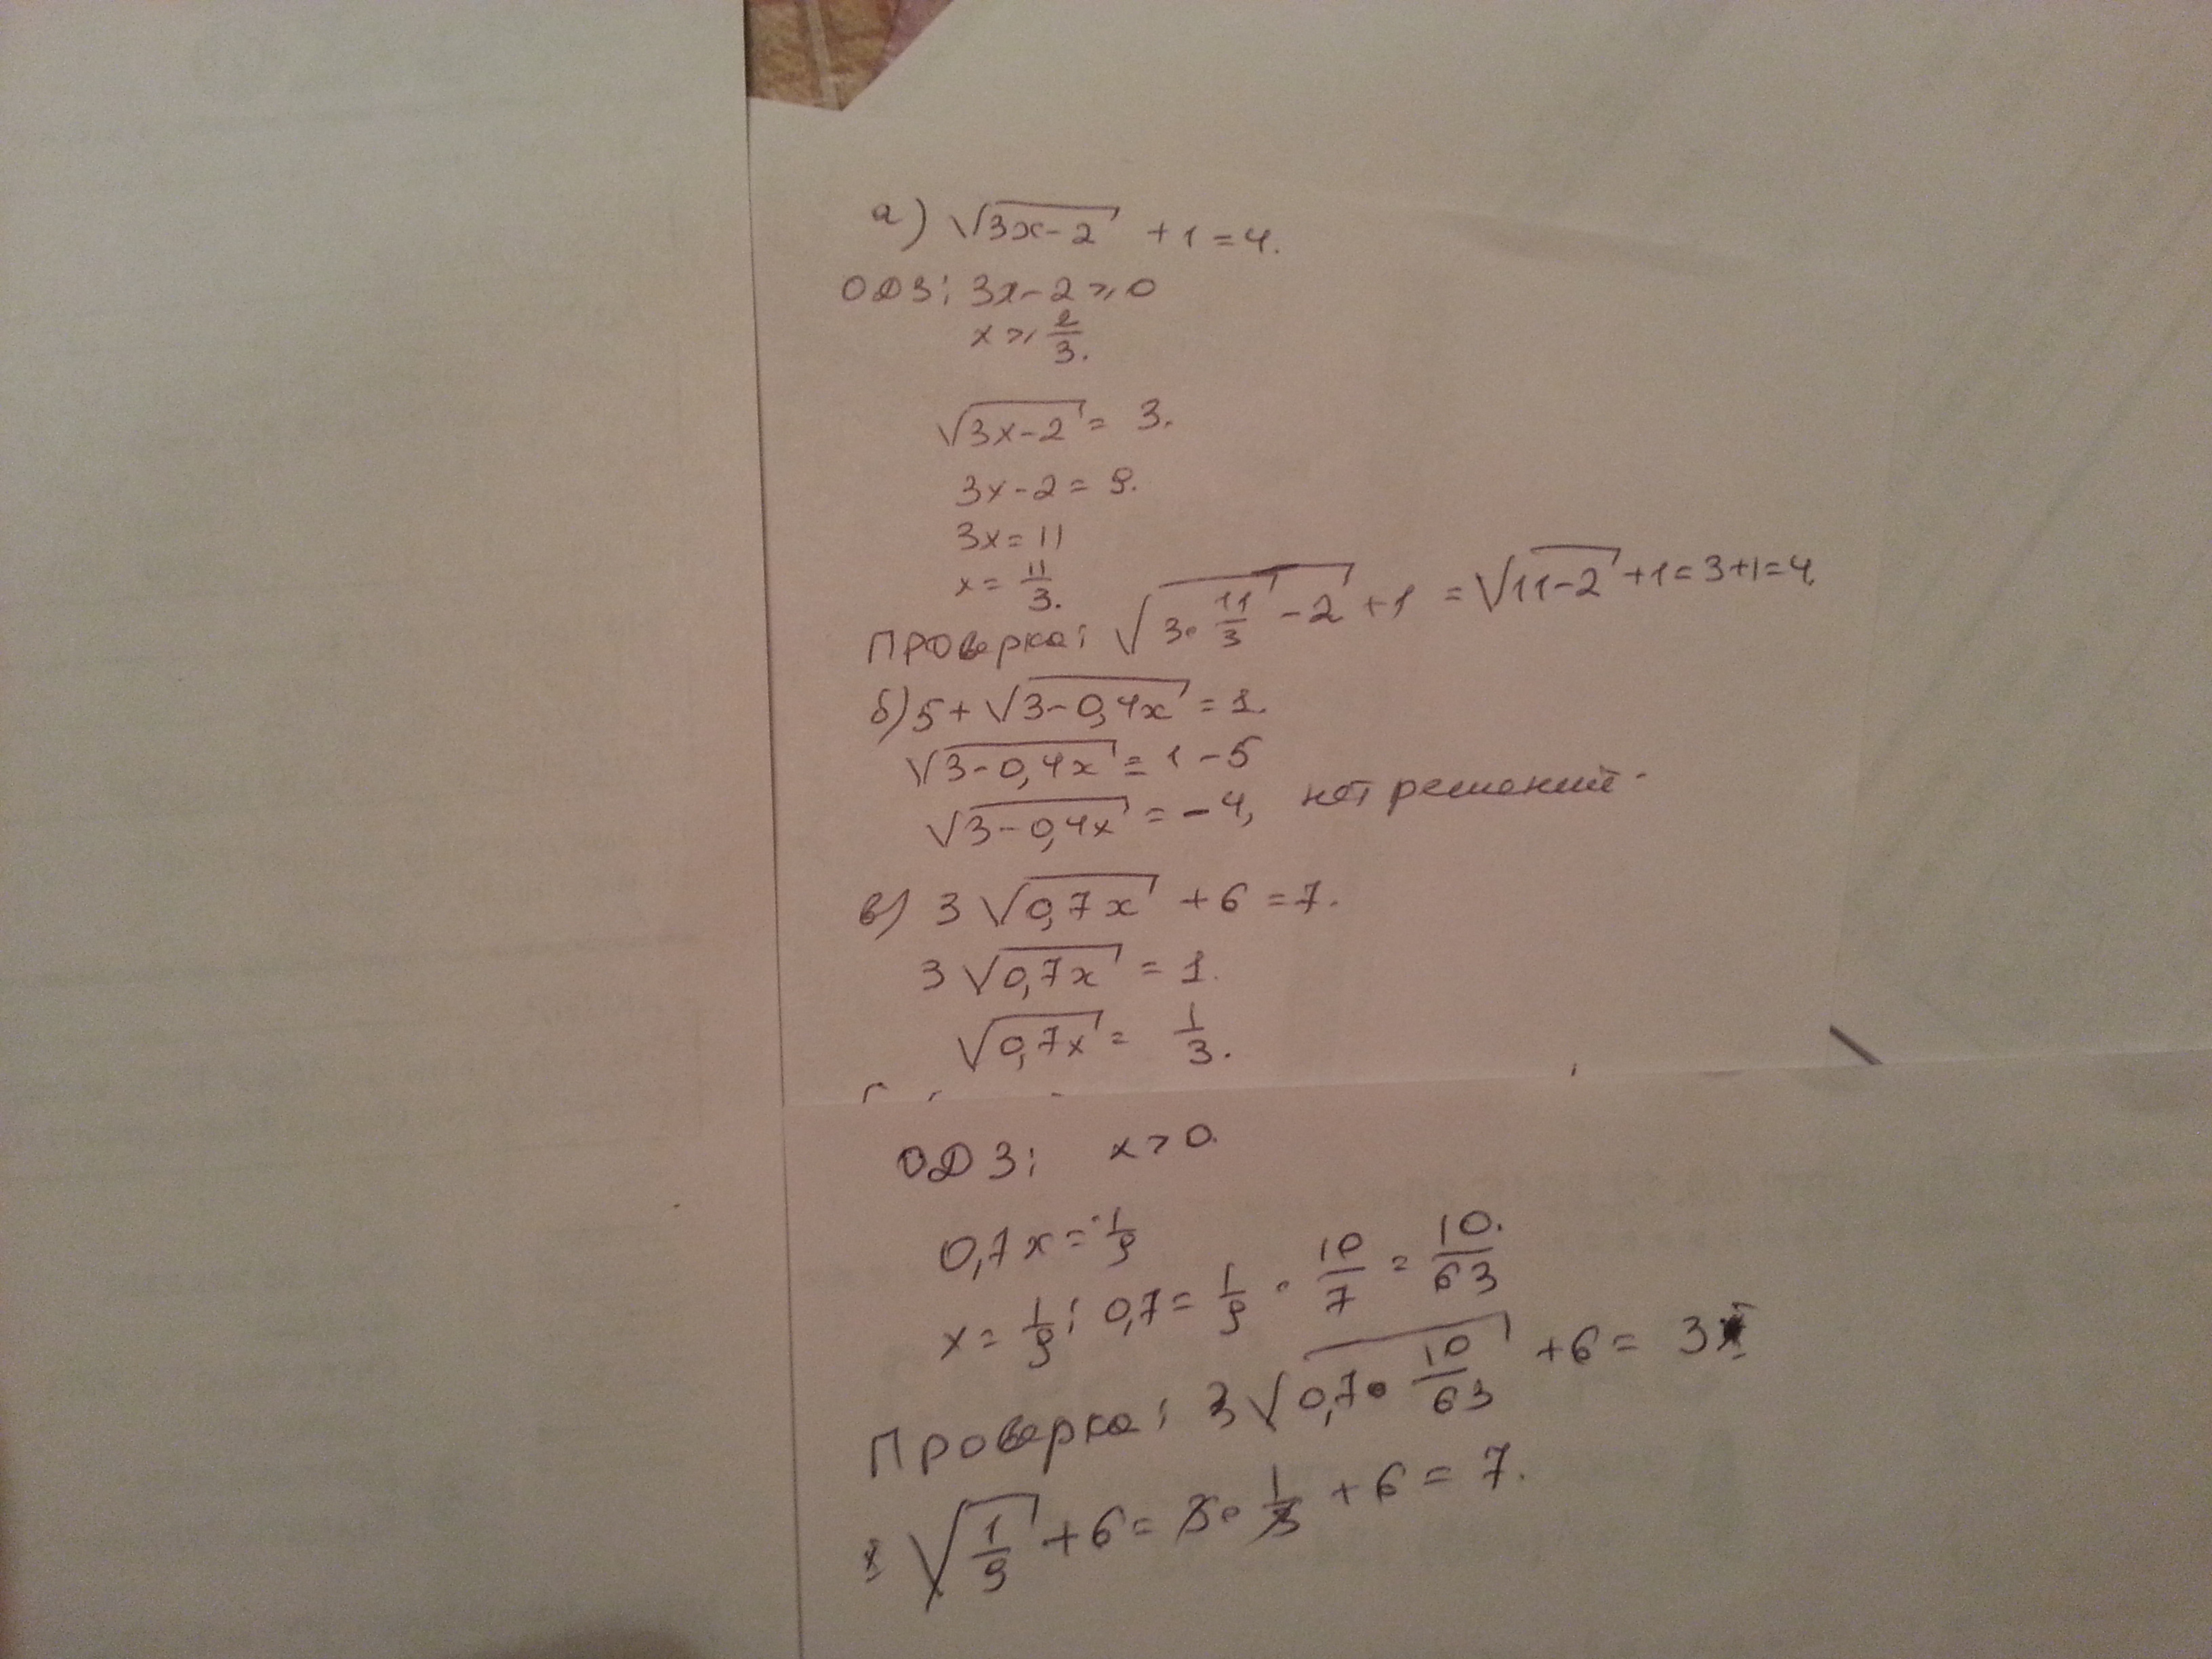 а) √(3x-2) + 1 = 4.
ОДЗ: 3x-2 ⩾ 0
x ⩾ 2/3.
√(3x-2) = 3.
3x-2 = 9.
3x = 11
x = 11/3.
Проверка: √(3·11/3 - 2) + 1 = √(11-2) + 1 = 3+1 = 4
б) 5 + √(3-0,4x) = 1.
√(3-0,4x) = 1-5
√(3-0,4x) = -4, нет решений.
в) 3√(0,7x) + 6 = 7.
3√(0,7x) = 1.
√(0,7x) = 1/3.
ОДЗ: x > 0.
0,7x = 1/9
x = 1/9 : 0,7 = 1/9 · 10/7 = 10/63.
Проверка: 3√(0,7·10/63) + 6 = 3
√(1/9) + 6 = 3·1/3 + 6 = 7.